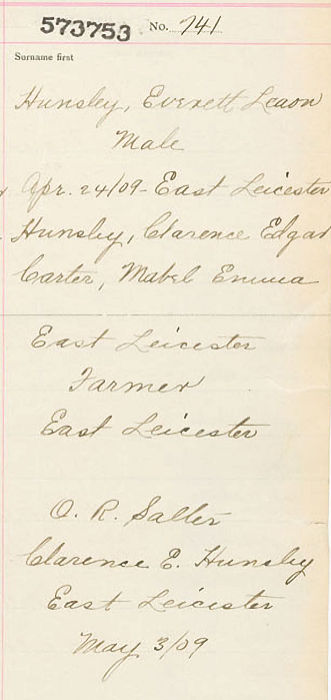 573753 No. 741
Surname first
Hunsley, Everett Leaon
Male
Apr. 24/09 - East Leicester
Hunsley, Clarence Edgar
Carter, Mabel Emma
East Leicester
Farmer
East Leicester
O. R. Salter
Clarence E. Hunsley
East Leicester
May 3/09